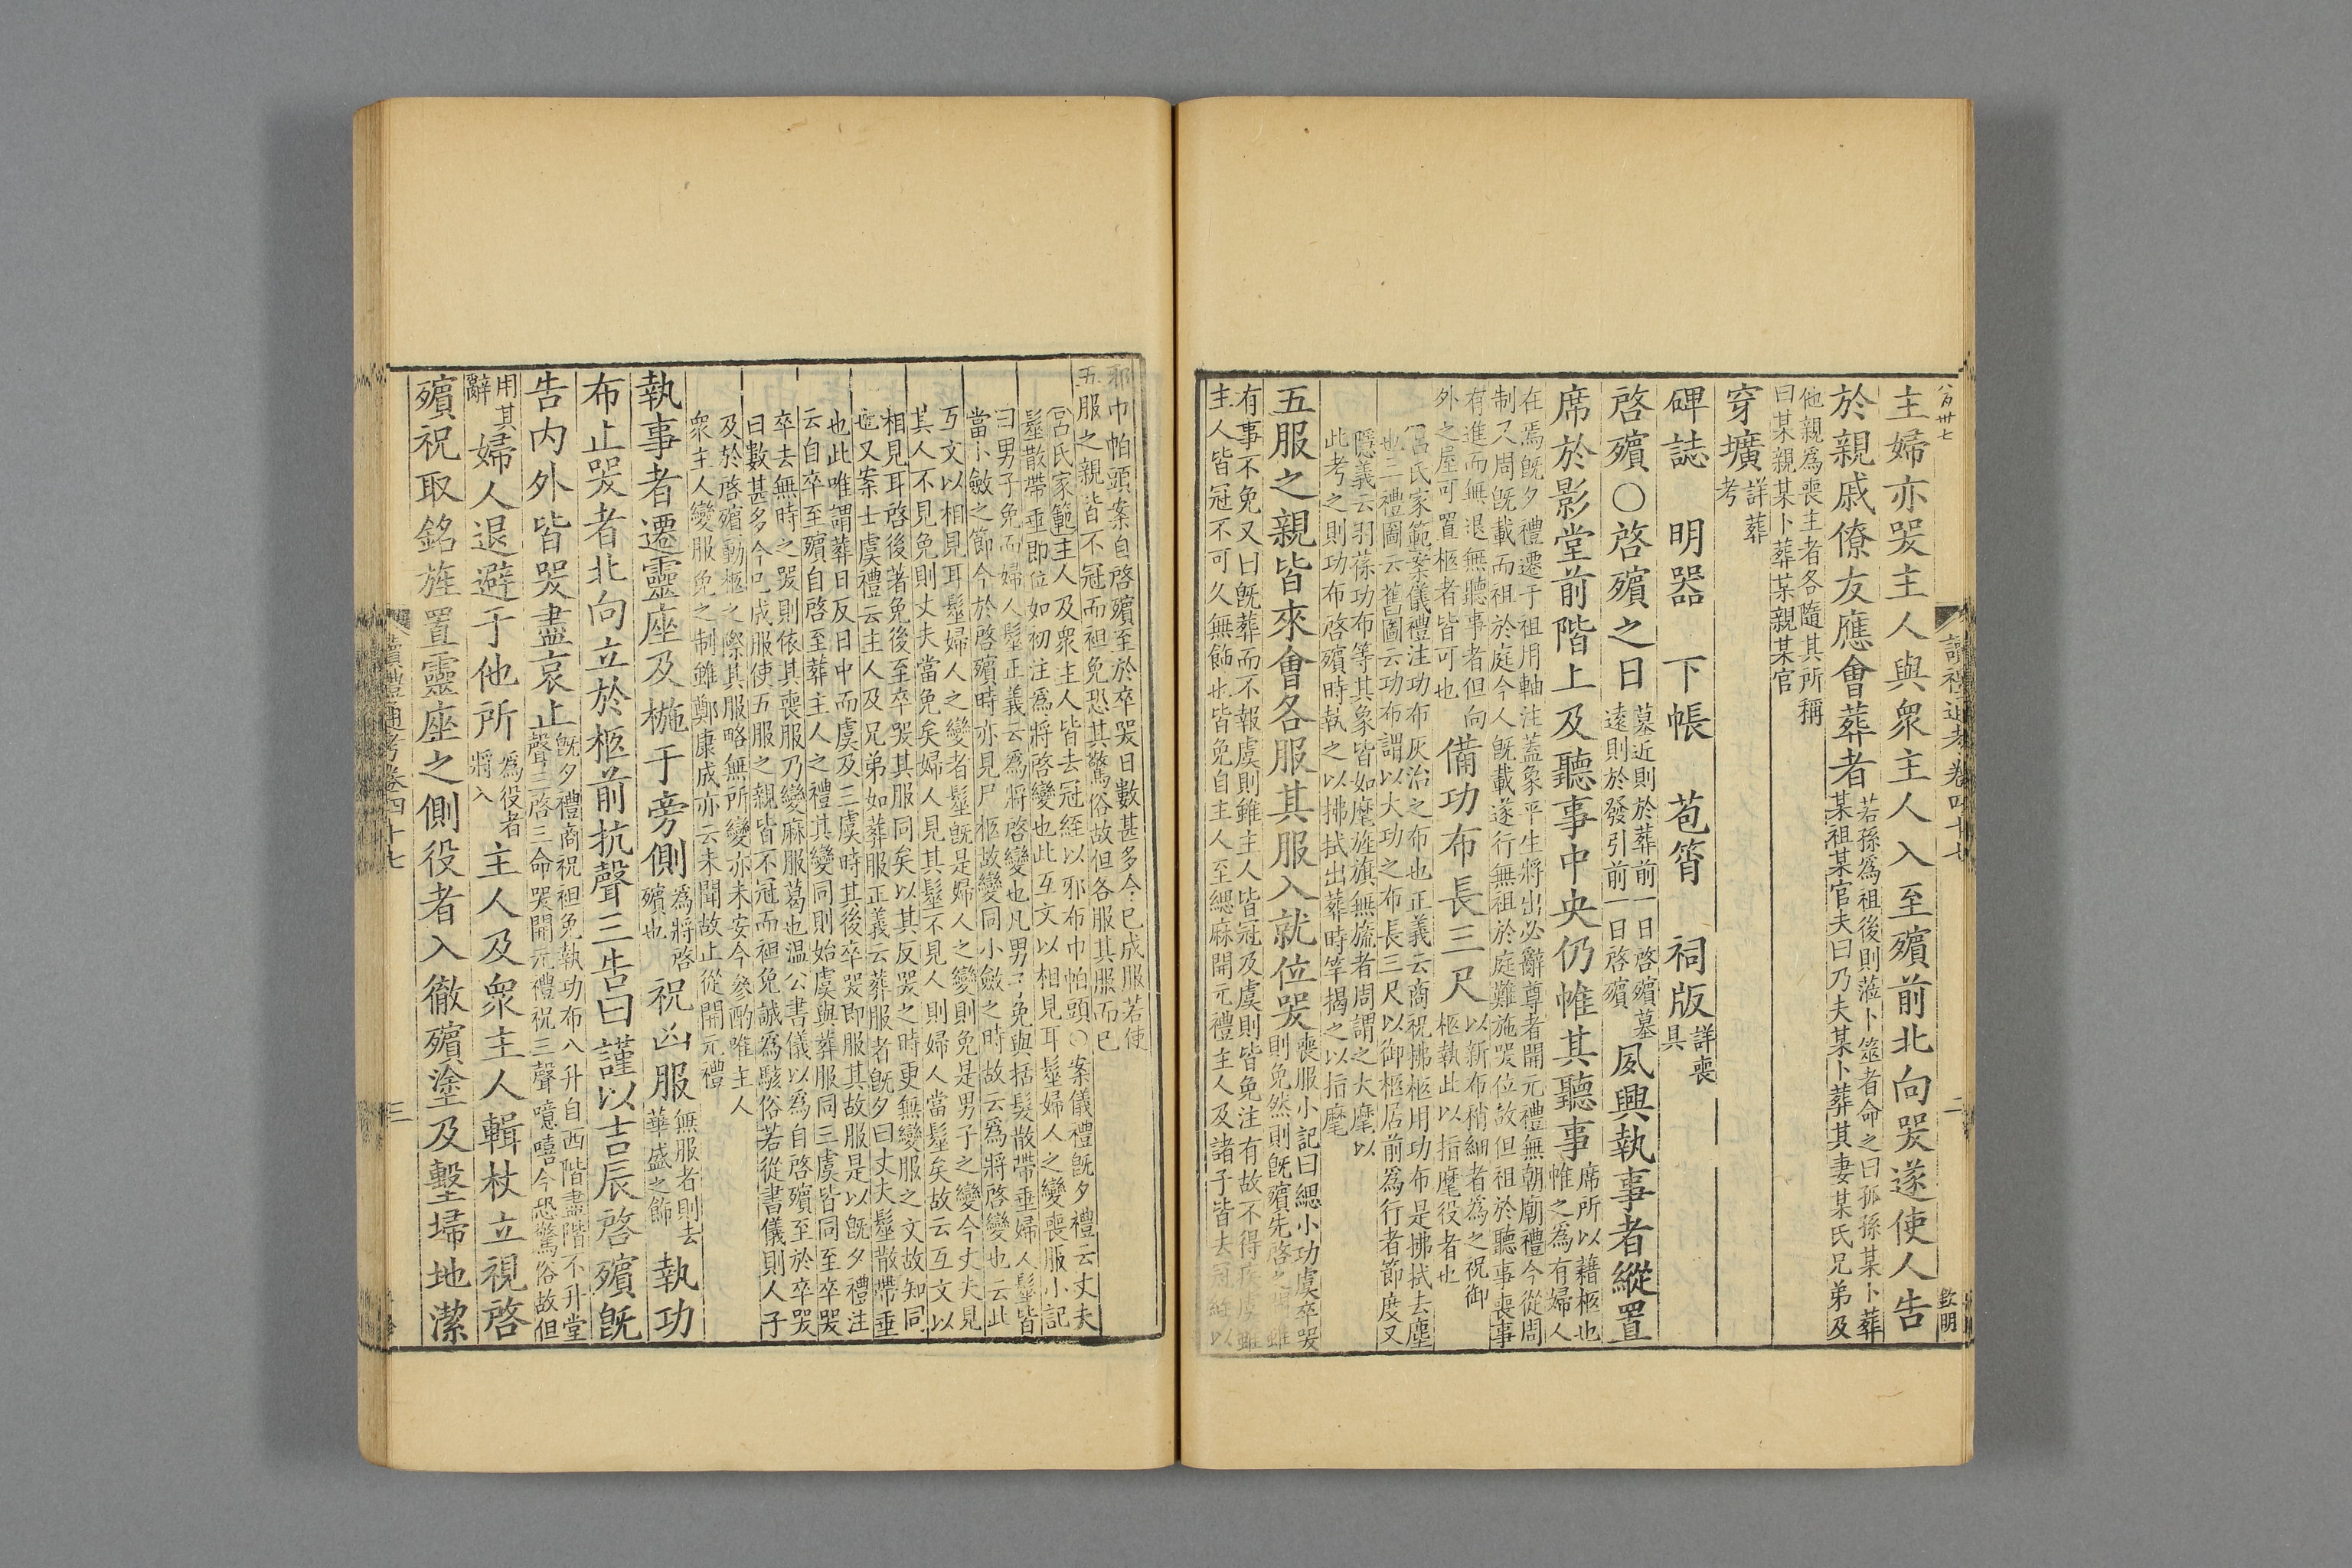 讀禮通考卷四十七
二
主婦亦哭主人與衆主人入至殯前北向哭遂使人告
於親戚僚友應會葬者若孫爲祖後則蒞卜筮者命之曰孤孫某卜葬
某祖某官夫曰乃夫某卜葬其妻某氏兄弟及
他親爲喪主者各隨其所稱
曰某親某卜葬某親某官
穿壙詳葬
考
碑誌 明器 下帳 苞筲 祠版詳喪
具
啓殯○啓殯之日墓近則於葬前一日啓殯墓
遠則於發引前一日啓殯夙興執事者縱置
席於影堂前階上及聽事中央仍帷其聽事席所以藉柩也
帷之爲有婦人
在焉旣夕禮遷于祖用軸注蓋象平生將出必辭尊者開元禮無朝廟禮今從周
制又周旣載而祖於庭今人旣載遂行無祖於庭難施哭位故但祖於聽事喪事
有進而無退無聽事者但向
外之屋可置柩者皆可也備功布長三尺以新布稍細者爲之祝御
柩執此以指麾役者也
呂氏家範案儀禮注功布灰治之布也正義云商祝拂柩用功布是拂拭去塵
也三禮圖云舊圖云功布謂以大功之布長三尺以御柩居前爲行者節度又
隱義云羽葆功布等其象皆如麾旌旗無旒者周謂之大麾以
此考之則功布啓殯時執之以拂拭出葬時竿揭之以指麾
五服之親皆來會各服其服入就位哭喪服小記曰緦小功虞卒哭
則免然則旣殯先啓之間雖
有事不免又曰旣葬而不報虞則雖主人皆冠及虞則皆免注有故不得疾虞雖
主人皆冠不可久無飾也皆免自主人至緦麻開元禮主人及諸子皆去冠絰以
邪巾帕頭案自啓殯至於卒哭日數甚多今已成服若使
五服之親皆不冠而袒免恐其驚俗故但各服其服而已
呂氏家範主人及衆主人皆去冠絰以邪布巾帕頭○案儀禮旣夕禮云丈夫
髽散帶垂即位如初注爲將啓變也此互文以相見耳髽婦人之變喪服小記
曰男子免而婦人髽正義云爲將啓變也凡男子免與括髮散帶垂婦人髽皆
當小斂之節今於啓殯時亦見尸柩故變同小斂之時故云爲將啓變也云此
互文以相見耳髽婦人之變者髽旣是婦人之變則免是男子之變今丈夫見
其人不見免則丈夫當免矣婦人見其髽不見人則婦人當髽矣故云互文以
相見耳啓後著免後至卒哭其服同矣以其反哭之時更無變服之文故知同
也又案士虞禮云主人及兄弟如葬服正義云葬服者旣夕曰丈夫髽散帶垂
也此唯謂葬日反日中而虞及三虞時其後卒哭即服其故服是以旣夕禮注
云自卒至殯自啓至葬主人之禮其變同則始虞與葬服同三虞皆同至卒哭
卒去無時之哭則依其喪服乃變麻服葛也溫公書儀以爲自啓殯至於卒哭
日數甚多今已成服使五服之親皆不冠而袒免誠爲駭俗若從書儀則人子
及於啓殯動柩之際其服略無所變亦未安今參酌唯主人
衆主人變服免之制雖鄭康成亦云未聞故止從開元禮
執事者遷靈座及椸于旁側爲將啓
殯也祝凶服無服者則去
華盛之飾執功
布止哭者北向立於柩前抗聲三告曰謹以吉辰啓殯旣
告內外皆哭盡哀止旣夕禮商祝袒免執功布入升自西階盡階不升堂
聲三啓三命哭開元禮祝三聲噫嘻今恐驚俗故但
用其
辭婦人退避于他所爲役者
將入主人及衆主人輯杖立視啓
殯祝取銘旌置靈座之側役者入徹殯塗及墼埽地潔
讀禮通考卷四十七
三